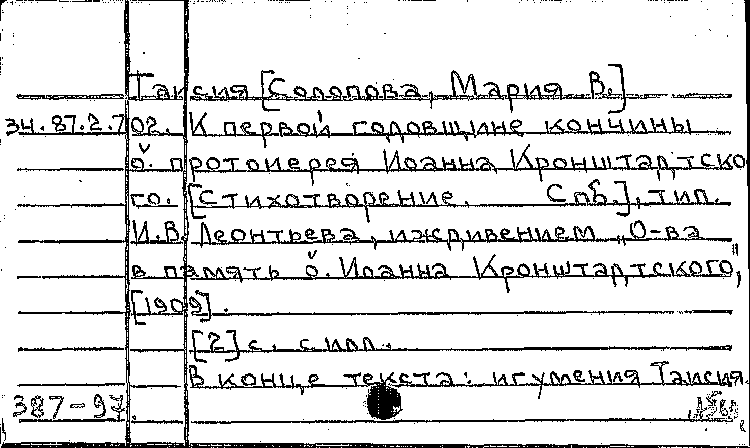 Таисия [Солопова, Мария В.]
34.87.2.702. К первой годовщине кончины
о̆. протоиерея Иоанна Кронштадтско
го. [Стихотворение. Спб.], тип.
И.В. Леонтьева, иждивением „О-ва
в память о̆. Иоанна Кронштадтского",
[1909].
[2] с. с илл.
В конце текста: игумения Таисия.
387-97.